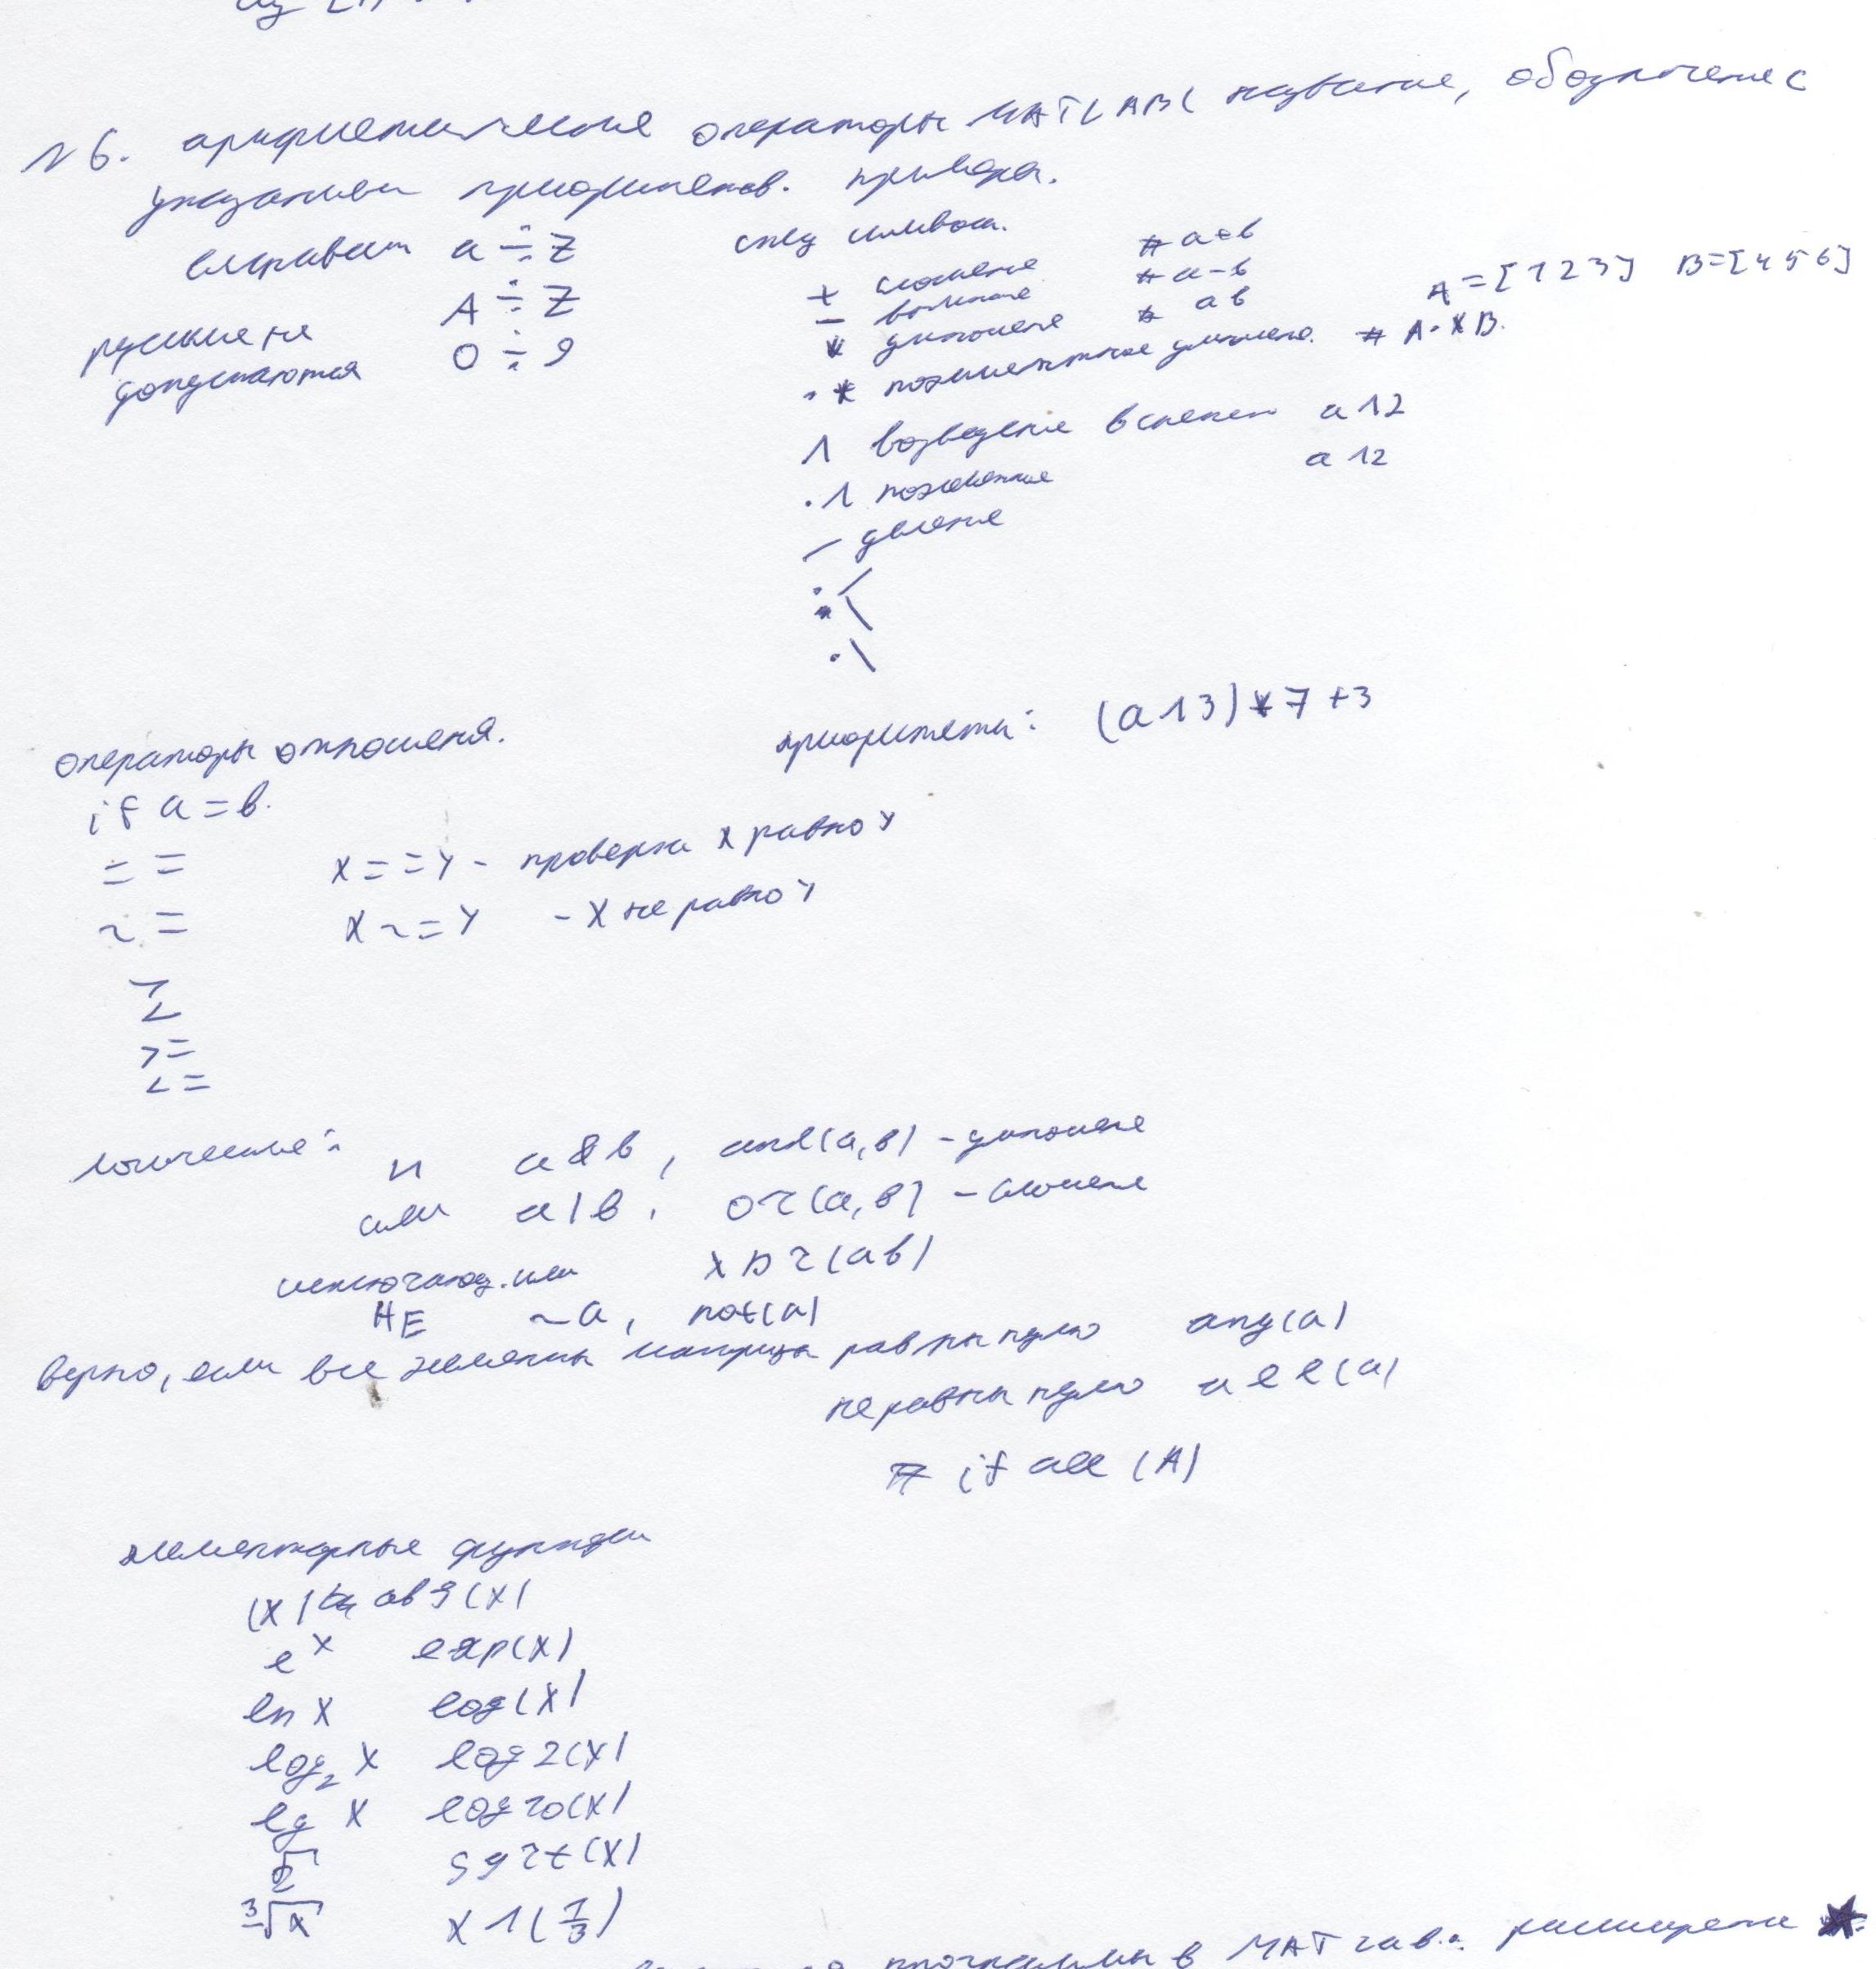 №6. арифметические операторы MATLAB( название, обозначение с
указанием приоритетов. примеры.
алфавит a÷z
A÷Z
0÷9
русские не
допускаются
спец символы.
+ сложение # a+b
- вычитание # a-b
* умножение * ab
.* поэлементное умножение. # A.*B.
A=[1 2 3] B=[4 5 6]
^ возведение в степень a^2
.^ поэлементное a^2
/ деление
./
\
.\
приоритеты: (a^3)*7+3
операторы отношения.
if a=b.
== x==y - проверка x равно y
~= x~=y - x не равно y
>
<
>=
<=
логические:
и a&b, and(a,b) - умножение
или a|b, or(a,b) - сложение
исключающ. или xor(ab)
НЕ ~a, not(a)
верно, если все элементы матрицы равны нулю any(a)
не равны нулю all(a)
# if all(A)
элементарные функции
|x| abs(x)
e^x exp(x)
ln x log(x)
log₂ x log2(x)
lg x log10(x)
√ sqrt(x)
³√x x^(1/3)
программы в MATLAB: расширение *.